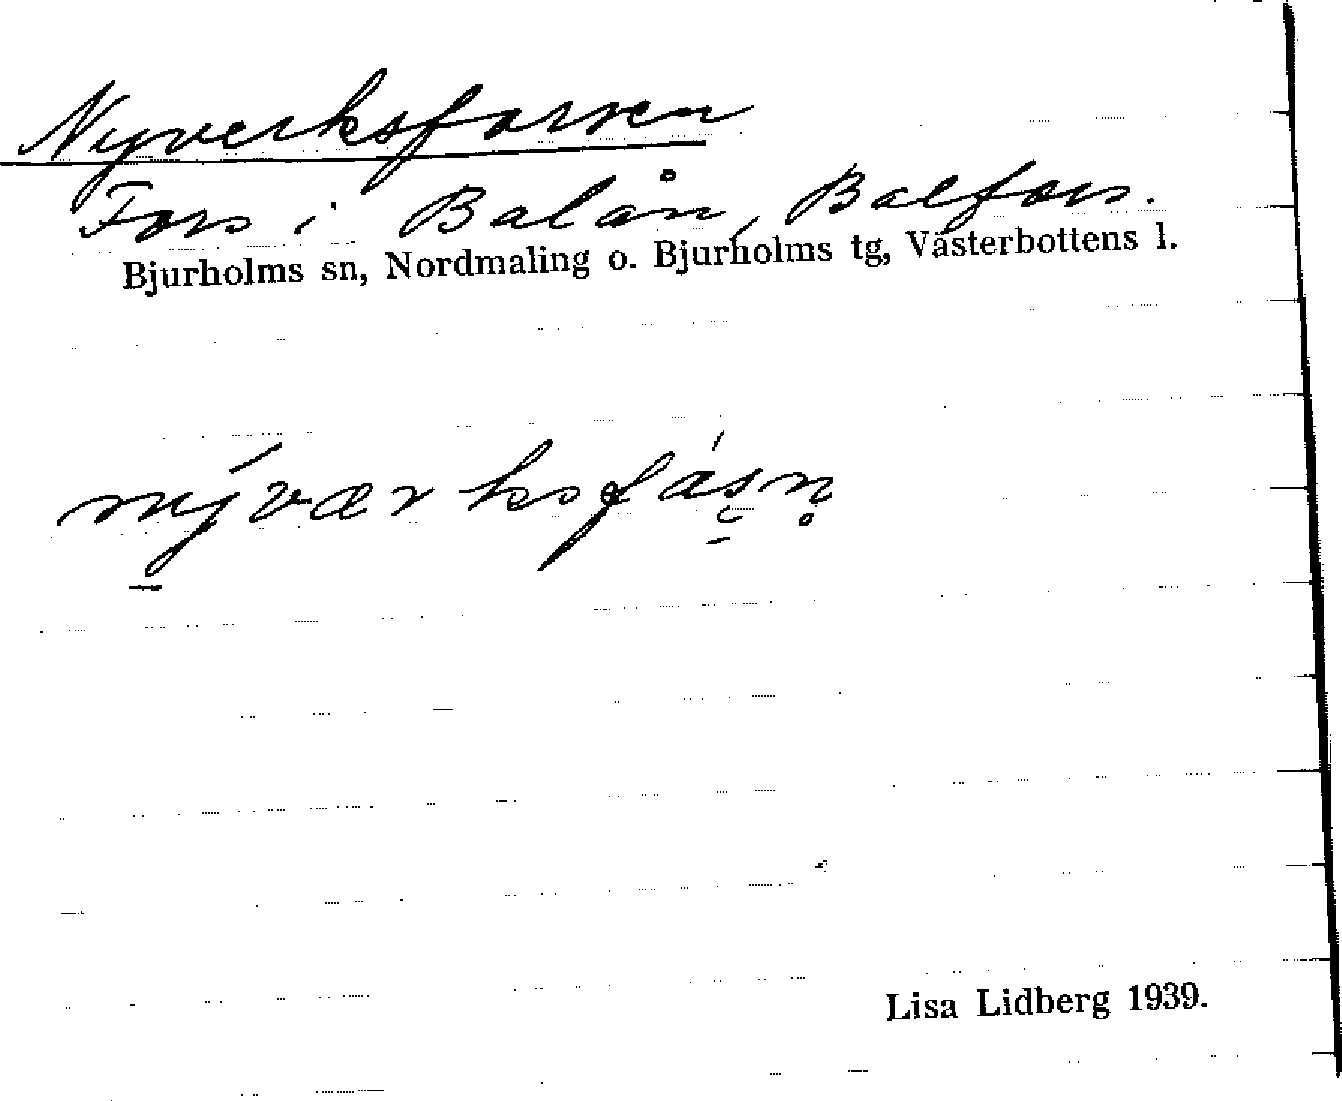 Nyverksforsen
Fors i Balån, Balfors.
Bjurholms sn, Nordmaling o. Bjurholms tg, Västerbottens l.
nýværksfásn̥
Lisa Lidberg 1939.